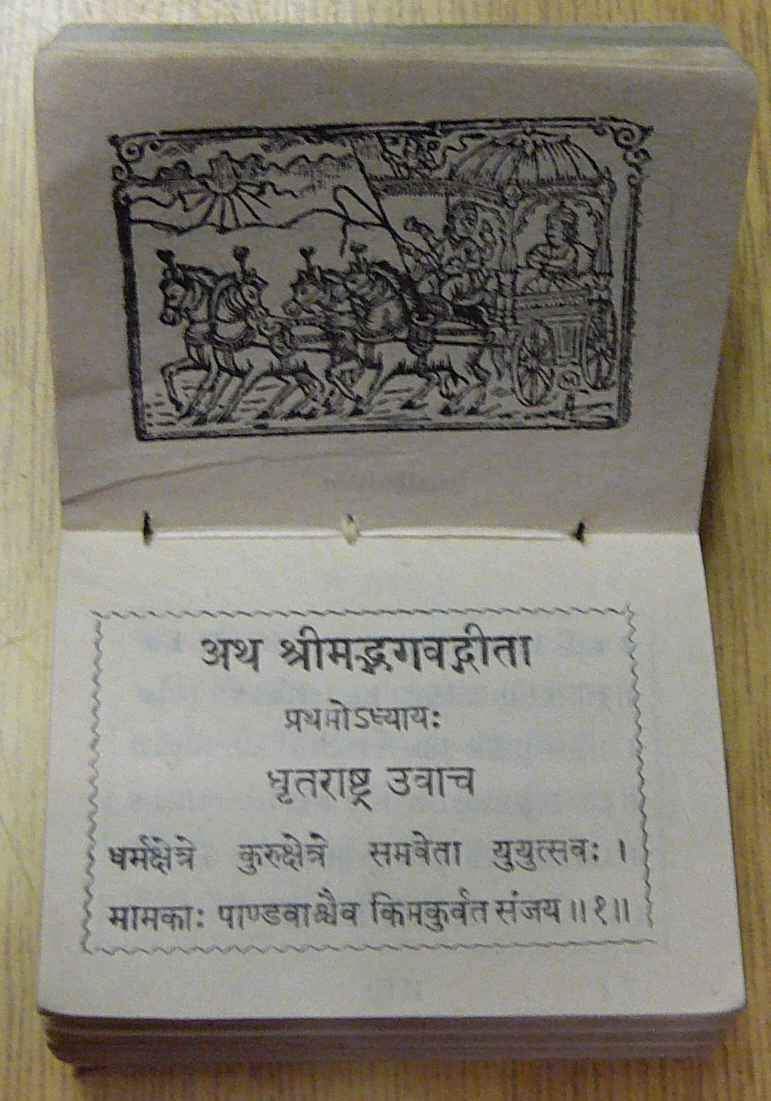 अथ श्रीमद्भगवद्गीता
प्रथमोऽध्यायः
धृतराष्ट्र उवाच
धर्मक्षेत्रे कुरुक्षेत्रे समवेता युयुत्सवः ।
मामकाः पाण्डवाश्चैव किमकुर्वत संजय ॥१॥